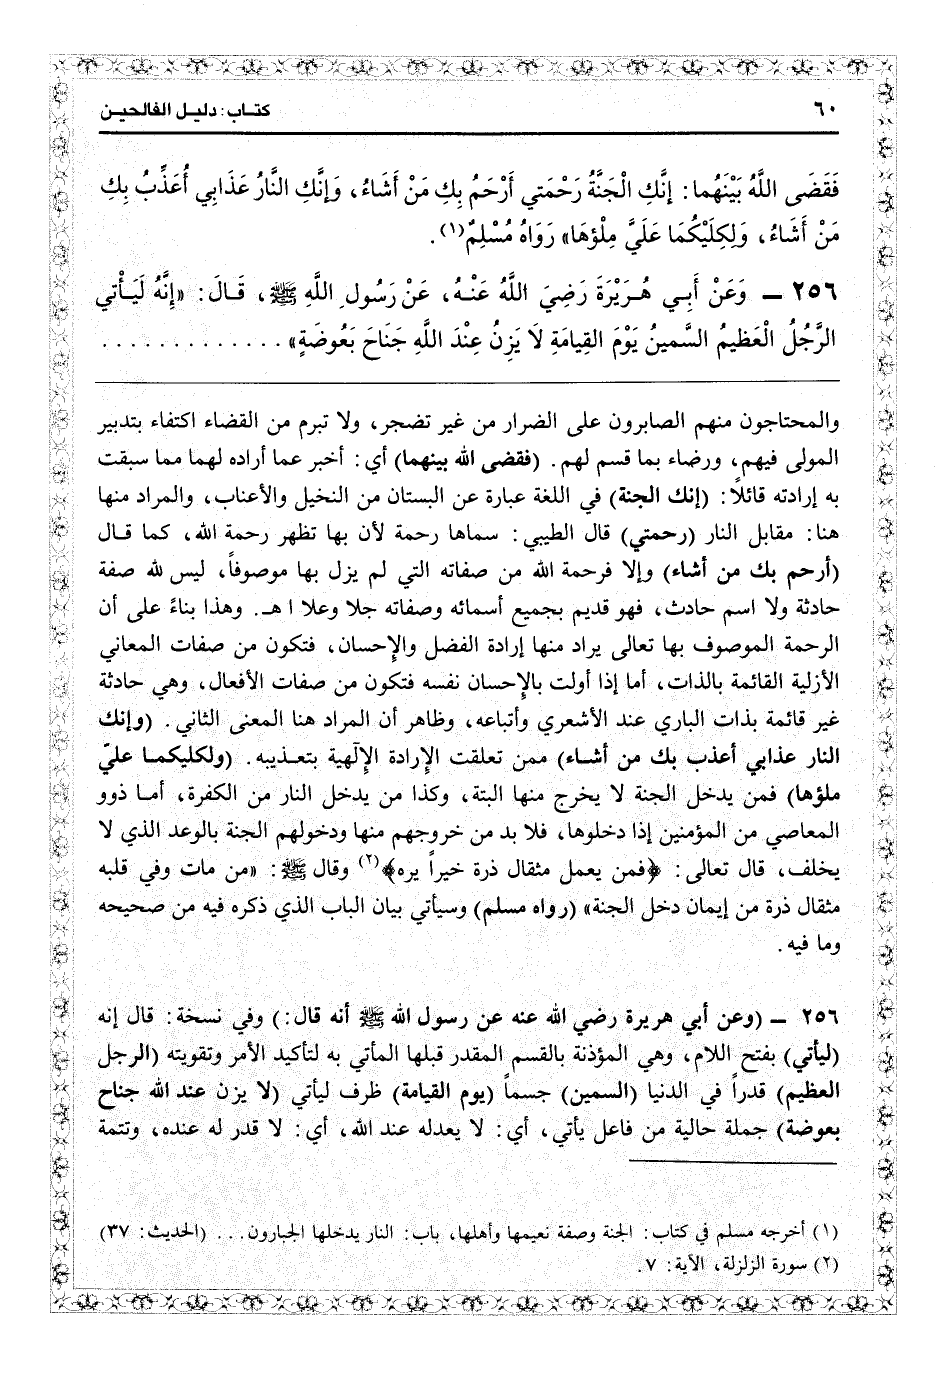 ٦٠
كتاب: دليل الفالحين
فَقَضَى اللَّهُ بَيْنَهُما: إِنَّكِ الْجَنَّةُ رَحْمَتي أَرْحَمُ بِكِ مَنْ أَشَاءُ، وَإِنَّكِ النَّارُ عَذَابي أُعَذِّبُ بِكِ
مَنْ أَشَاءُ، وَلِكِلَيْكُمَا عَلَيَّ مِلْؤهَا» رَوَاهُ مُسْلِمٌ(١).
٢٥٦ ـ وَعَنْ أَبِـي هُـرَيْرَةَ رَضِيَ اللَّهُ عَنْـهُ، عَنْ رَسُولِ اللَّهِ ﷺ، قَـالَ: «إِنَّهُ لَيَـأْتي
الرَّجُلُ الْعَظِيمُ السَّمينُ يَوْمَ القِيامَةِ لَا يَزِنُ عِنْدَ اللَّهِ جَنَاحَ بَعُوضَةٍ» . . . . . . . . . . . . .
والمحتاجون منهم الصابرون على الضرار من غير تضجر، ولا تبرم من القضاء اكتفاء بتدبير
المولى فيهم، ورضاء بما قسم لهم. (فقضى الله بينهما) أي: أخبر عما أراده لهما مما سبقت
به إرادته قائلاً: (إنك الجنة) في اللغة عبارة عن البستان من النخيل والأعناب، والمراد منها
هنا: مقابل النار (رحمتي) قال الطيبي: سماها رحمة لأن بها تظهر رحمة الله، كما قـال
(أرحم بك من أشاء) وإلا فرحمة الله من صفاته التي لم يزل بها موصوفاً، ليس لله صفة
حادثة ولا اسم حادث، فهو قديم بجميع أسمائه وصفاته جلا وعلا ا هـ. وهذا بناءً على أن
الرحمة الموصوف بها تعالى يراد منها إرادة الفضل والإحسان، فتكون من صفات المعاني
الأزلية القائمة بالذات، أما إذا أولت بالإحسان نفسه فتكون من صفات الأفعال، وهي حادثة
غير قائمة بذات الباري عند الأشعري وأتباعه، وظاهر أن المراد هنا المعنى الثاني. (وإنك
النار عذابي أعذب بك من أشاء) ممن تعلقت الإرادة الإلهية بتعـذيبه. (ولكليكمـا عليّ
ملؤها) فمن يدخل الجنة لا يخرج منها البتة، وكذا من يدخل النار من الكفرة، أمـا ذوو
المعاصي من المؤمنين إذا دخلوها، فلا بد من خروجهم منها ودخولهم الجنة بالوعد الذي لا
يخلف، قال تعالى: ﴿فمن يعمل مثقال ذرة خيراً يره﴾(٢) وقال ﷺ: «من مات وفي قلبه
مثقال ذرة من إيمان دخل الجنة» (رواه مسلم) وسيأتي بيان الباب الذي ذكره فيه من صحيحه
وما فيه.
٢٥٦ ـ (وعن أبي هريرة رضي الله عنه عن رسول الله ﷺ أنه قال:) وفي نسخة: قال إنه
(ليأتي) بفتح اللام، وهي المؤذنة بالقسم المقدر قبلها المأتي به لتأكيد الأمر وتقويته (الرجل
العظيم) قدراً في الدنيا (السمين) جسماً (يوم القيامة) ظرف ليأتي (لا يزن عند الله جناح
بعوضة) جملة حالية من فاعل يأتي، أي: لا يعدله عند الله، أي: لا قدر له عنده، وتتمة
(١) أخرجه مسلم في كتاب: الجنة وصفة نعيمها وأهلها، باب: النار يدخلها الجبارون... (الحديث: ٣٧)
(٢) سورة الزلزلة، الآية: ٧.